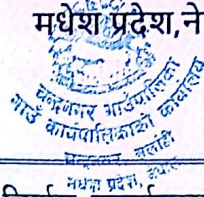 मधेश प्रदेश,ने
चन्द्रनगर गाउँपालिका
गाउँ कार्यपालिकाको कार्यालय
चन्द्रनगर, सर्लाही
मधेश प्रदेश, नेपाल